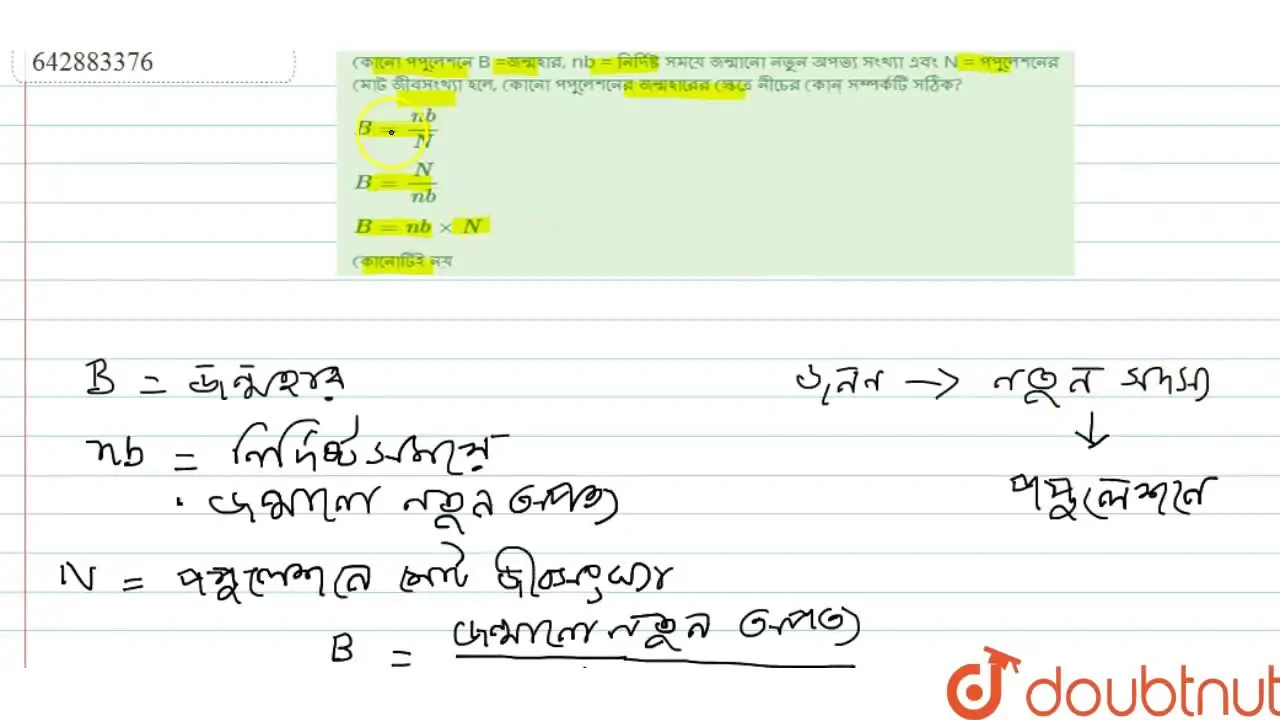 642883376
কোনো পপুলেশনে B =জন্মহার, nb = নির্দিষ্ট সময়ে জন্মানো নতুন অপত্য সংখ্যা এবং N = পপুলেশনের
মোট জীবসংখ্যা হলে, কোনো পপুলেশনের জন্মহারের ক্ষেত্রে নীচের কোন সম্পর্কটি সঠিক?
B = nb/N
B = N/nb
B = nb × N
কোনোটিই নয়
B = জন্মহার
জনন → নতুন সদস্য
nb = নির্দিষ্ট সময়ে
↓
জন্মানো নতুন অপত্য
পপুলেশনে
N = পপুলেশনে মোট জীবসংখ্যার
B = জন্মানো নতুন অপত্য
doubtnut